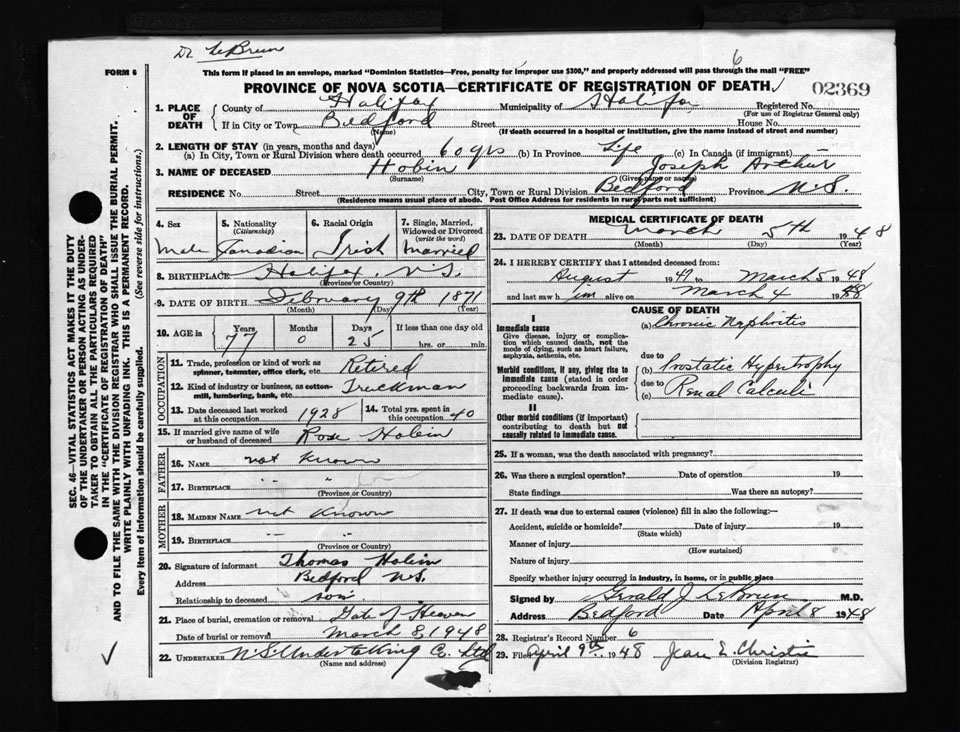 Dr LeBrun
6
FORM 6
This form if placed in an envelope, marked "Dominion Statistics—Free, penalty for improper use $300," and properly addressed will pass through the mail "FREE"
PROVINCE OF NOVA SCOTIA—CERTIFICATE OF REGISTRATION OF DEATH
02369
1. PLACE OF DEATH
County of Halifax Municipality of Halifax Registered No.
(For use of Registrar General only)
If in City or Town Bedford Street House No.
(Name) (If death occurred in a hospital or institution, give the name instead of street and number)
2. LENGTH OF STAY (in years, months and days)
(a) In City, Town or Rural Division where death occurred 60 yrs (b) In Province Life (c) In Canada (if immigrant)
3. NAME OF DECEASED Hobin Joseph Arthur
(Surname) (Given name or names)
RESIDENCE No. Street City, Town or Rural Division Bedford Province N.S.
(Residence means usual place of abode. Post Office Address for residents in rural parts not sufficient)
4. Sex Male
5. Nationality (Citizenship) Canadian
6. Racial Origin Irish
7. Single, Married, Widowed or Divorced (write the word) Married
8. BIRTHPLACE Halifax, N.S.
(Province or Country)
9. DATE OF BIRTH February 9th 1871
(Month) (Day) (Year)
10. AGE in Years 77 Months 0 Days 25 If less than one day old hrs. or min.
OCCUPATION
11. Trade, profession or kind of work as spinner, teamster, office clerk, etc. Retired
12. Kind of industry or business, as cotton-mill, lumbering, bank, etc. Truckman
13. Date deceased last worked at this occupation 1928 14. Total yrs. spent in this occupation 40
15. If married give name of wife or husband of deceased Rose Hobin
FATHER
16. NAME not known
17. BIRTHPLACE " "
(Province or Country)
MOTHER
18. MAIDEN NAME not known
19. BIRTHPLACE " "
(Province or Country)
20. Signature of informant Thomas Hobin
Address Bedford N.S.
Relationship to deceased son
21. Place of burial, cremation or removal Gate of Heaven
Date of burial or removal March 8, 1948
22. UNDERTAKER N.S. Undertaking Co. Ltd
(Name and address)
MEDICAL CERTIFICATE OF DEATH
23. DATE OF DEATH March 5th 1948
(Month) (Day) (Year)
24. I HEREBY CERTIFY that I attended deceased from:
August 1947 to March 5 1948
and last saw him alive on March 4 1948
CAUSE OF DEATH
I
Immediate cause
Give disease, injury or complication which caused death, not the mode of dying, such as heart failure, asphyxia, asthenia, etc.
(a) Chronic Nephritis
due to
Morbid conditions, if any, giving rise to immediate cause (stated in order proceeding backwards from immediate cause).
(b) Prostatic Hypertrophy
due to
(c) Renal Calculi
II
Other morbid conditions (if important) contributing to death but not causally related to immediate cause.
25. If a woman, was the death associated with pregnancy?
26. Was there a surgical operation? Date of operation 19
State findings Was there an autopsy?
27. If death was due to external causes (violence) fill in also the following:—
Accident, suicide or homicide? Date of injury 19
(State which)
Manner of injury
(How sustained)
Nature of injury
Specify whether injury occurred in industry, in home, or in public place
Signed by Gerald J LeBrun M.D.
Address Bedford Date April 8 1948
28. Registrar's Record Number 6
29. Filed April 9th 1948 Jean E. Christie
(Division Registrar)
SEC. 46—VITAL STATISTICS ACT MAKES IT THE DUTY
OF THE UNDERTAKER OR PERSON ACTING AS UNDER-
TAKER TO OBTAIN ALL THE PARTICULARS REQUIRED
IN THE "CERTIFICATE OF REGISTRATION OF DEATH"
AND TO FILE THE SAME WITH THE DIVISION REGISTRAR WHO SHALL ISSUE THE BURIAL PERMIT.
WRITE PLAINLY WITH UNFADING INK. THIS IS A PERMANENT RECORD.
Every item of Information should be carefully supplied. (See reverse side for instructions.)